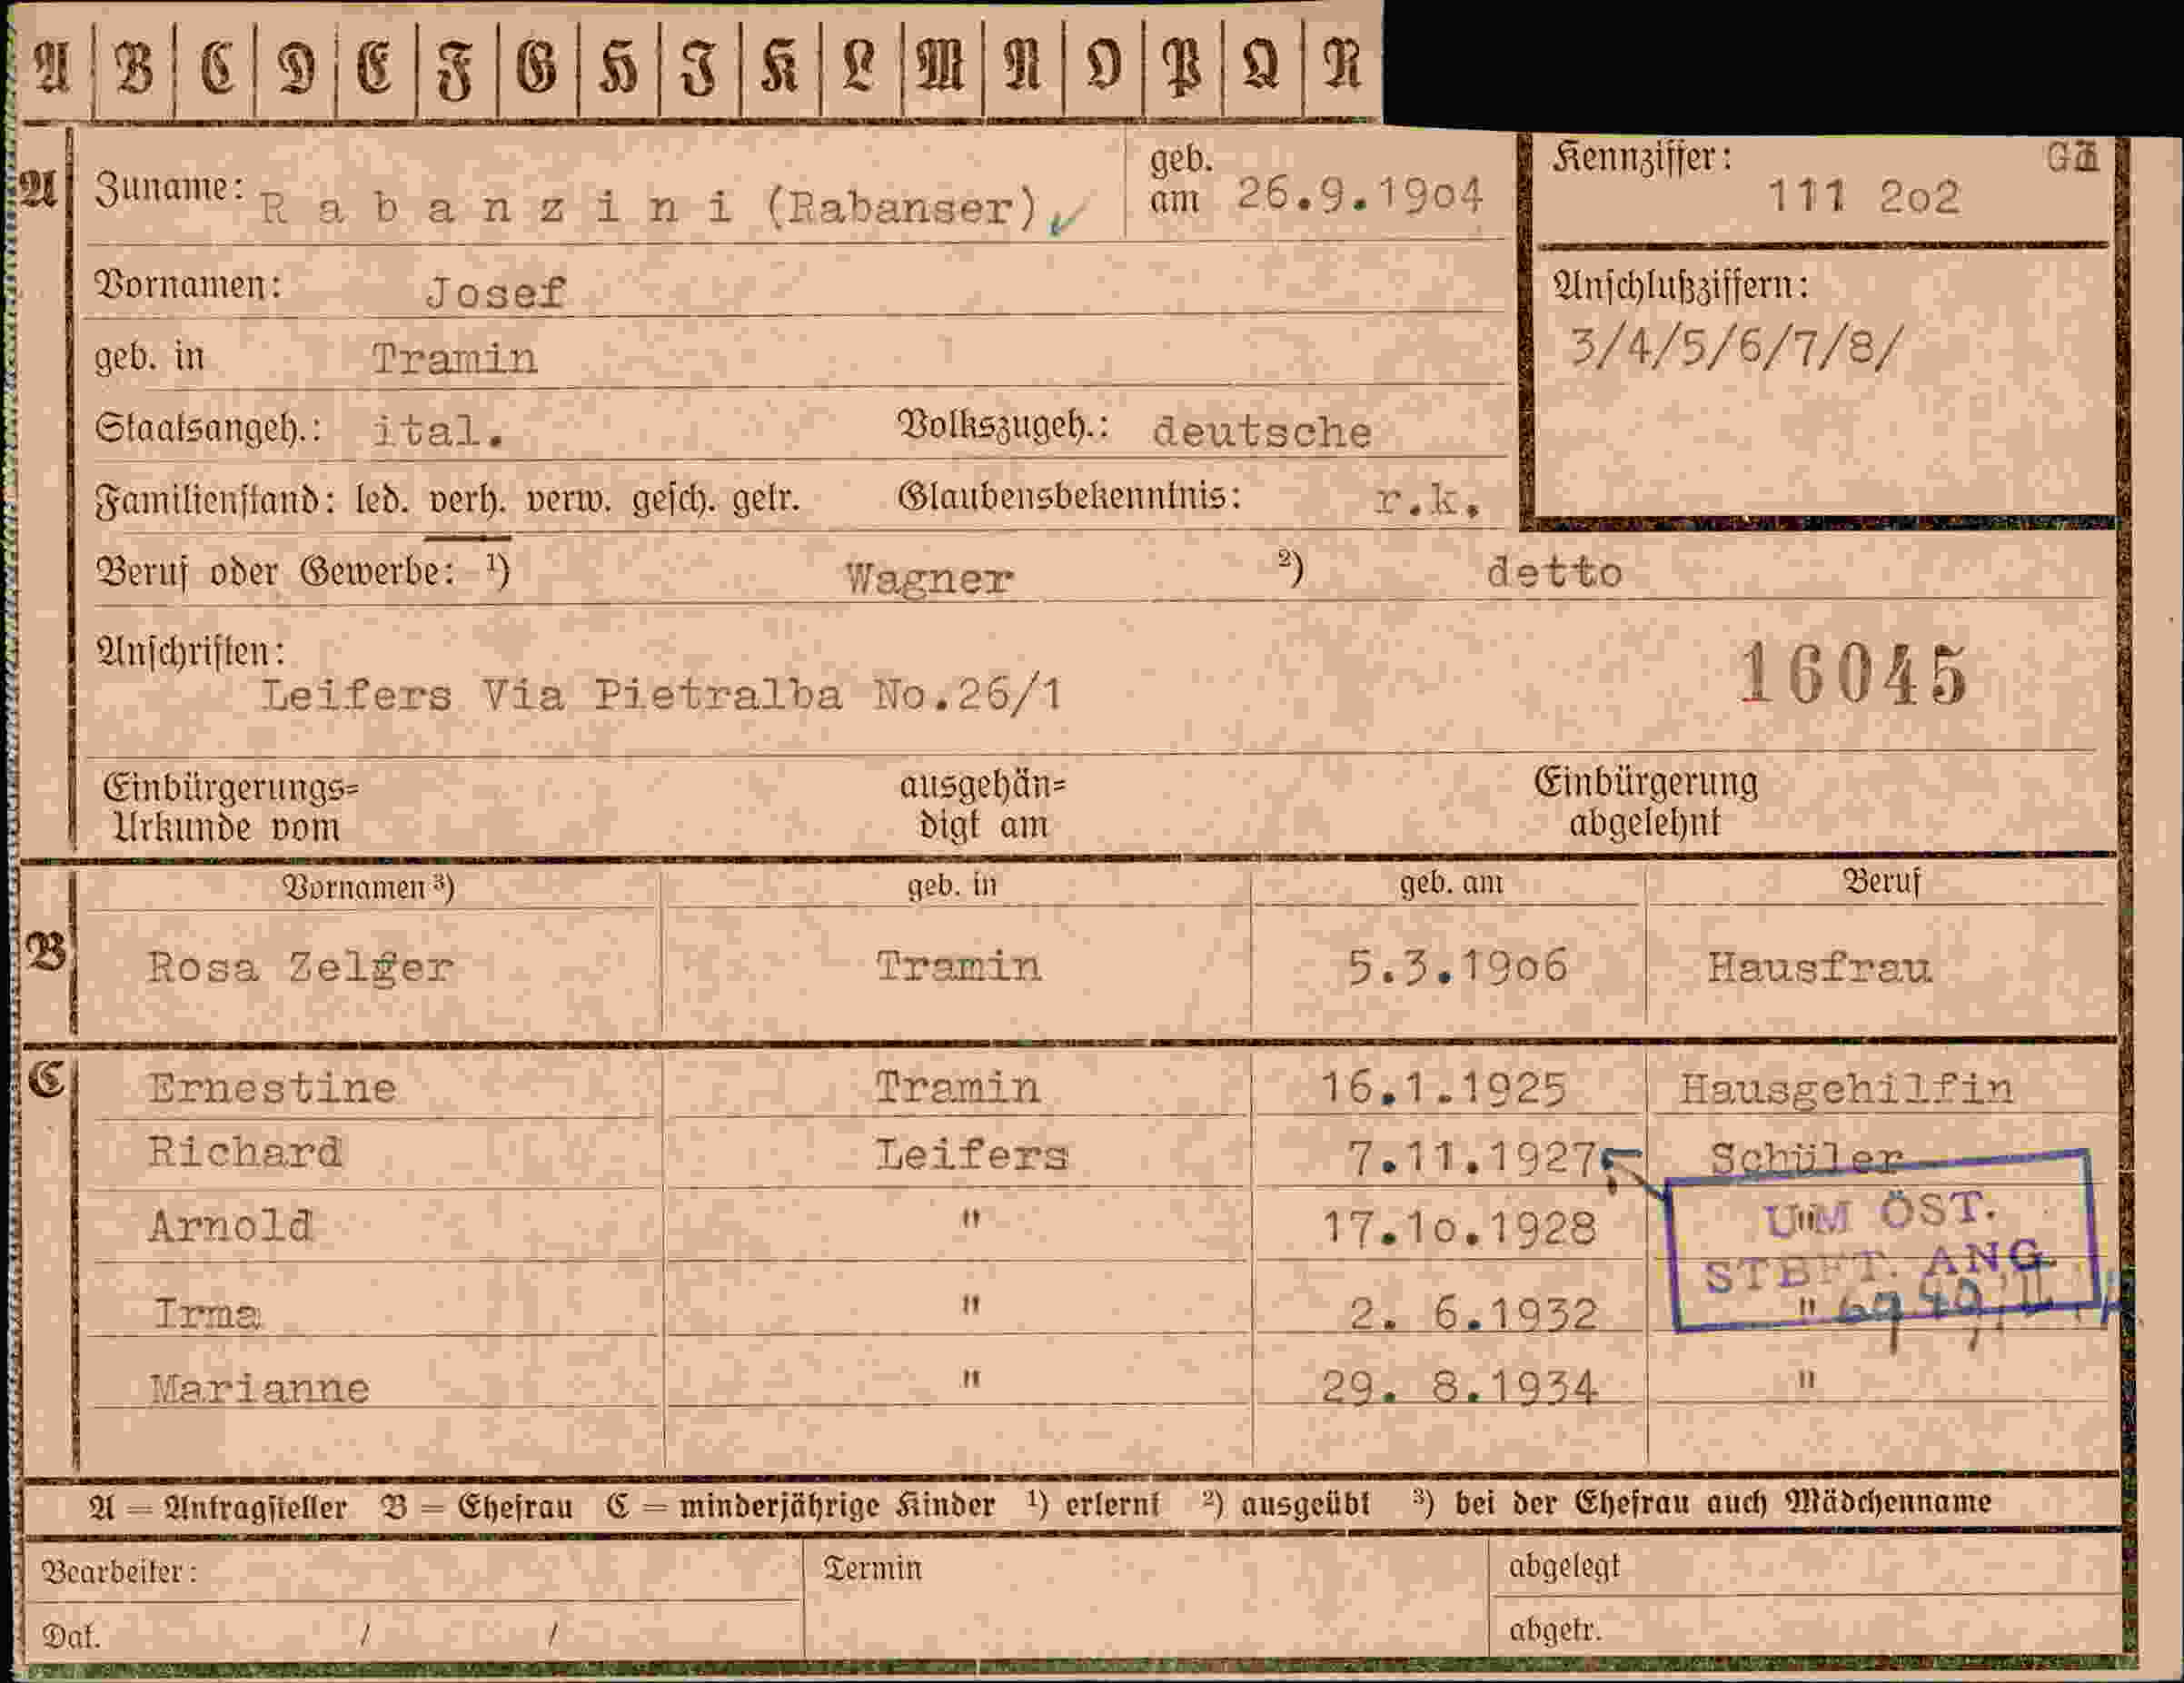 A B C D E F G H I K L M N O P Q R
A Zuname: Rabanzini (Rabanser) geb. am 26.9.19o4
Kennziffer: 111 2o2
Vornamen: Josef
Anschlußziffern:
3/4/5/6/7/8/
geb. in Tramin
Staatsangeh.: ital. Volkszugeh.: deutsche
Familienstand: led. verh. verw. gesch. getr. Glaubensbekenntnis: r.k.
Beruf oder Gewerbe: ¹) Wagner ²) detto
Anschriften:
Leifers Via Pietralba No.26/1
16045
Einbürgerungs=
Urkunde vom
ausgehän=
digt am
Einbürgerung
abgelehnt
Vornamen ³) geb. in geb. am Beruf
B Rosa Zelger Tramin 5.3.19o6 Hausfrau
C Ernestine Tramin 16.1.1925 Hausgehilfin
Richard Leifers 7.11.1927 Schüler
Arnold " 17.1o.1928 "
UM ÖST.
STBFT. ANG.
Irma " 2. 6.1932 "
Marianne " 29. 8.1934 "
A = Antragsteller B = Ehefrau C = minderjährige Kinder ¹) erlernt ²) ausgeübt ³) bei der Ehefrau auch Mädchenname
Bearbeiter: Termin abgelegt
Dat. / / abgetr.